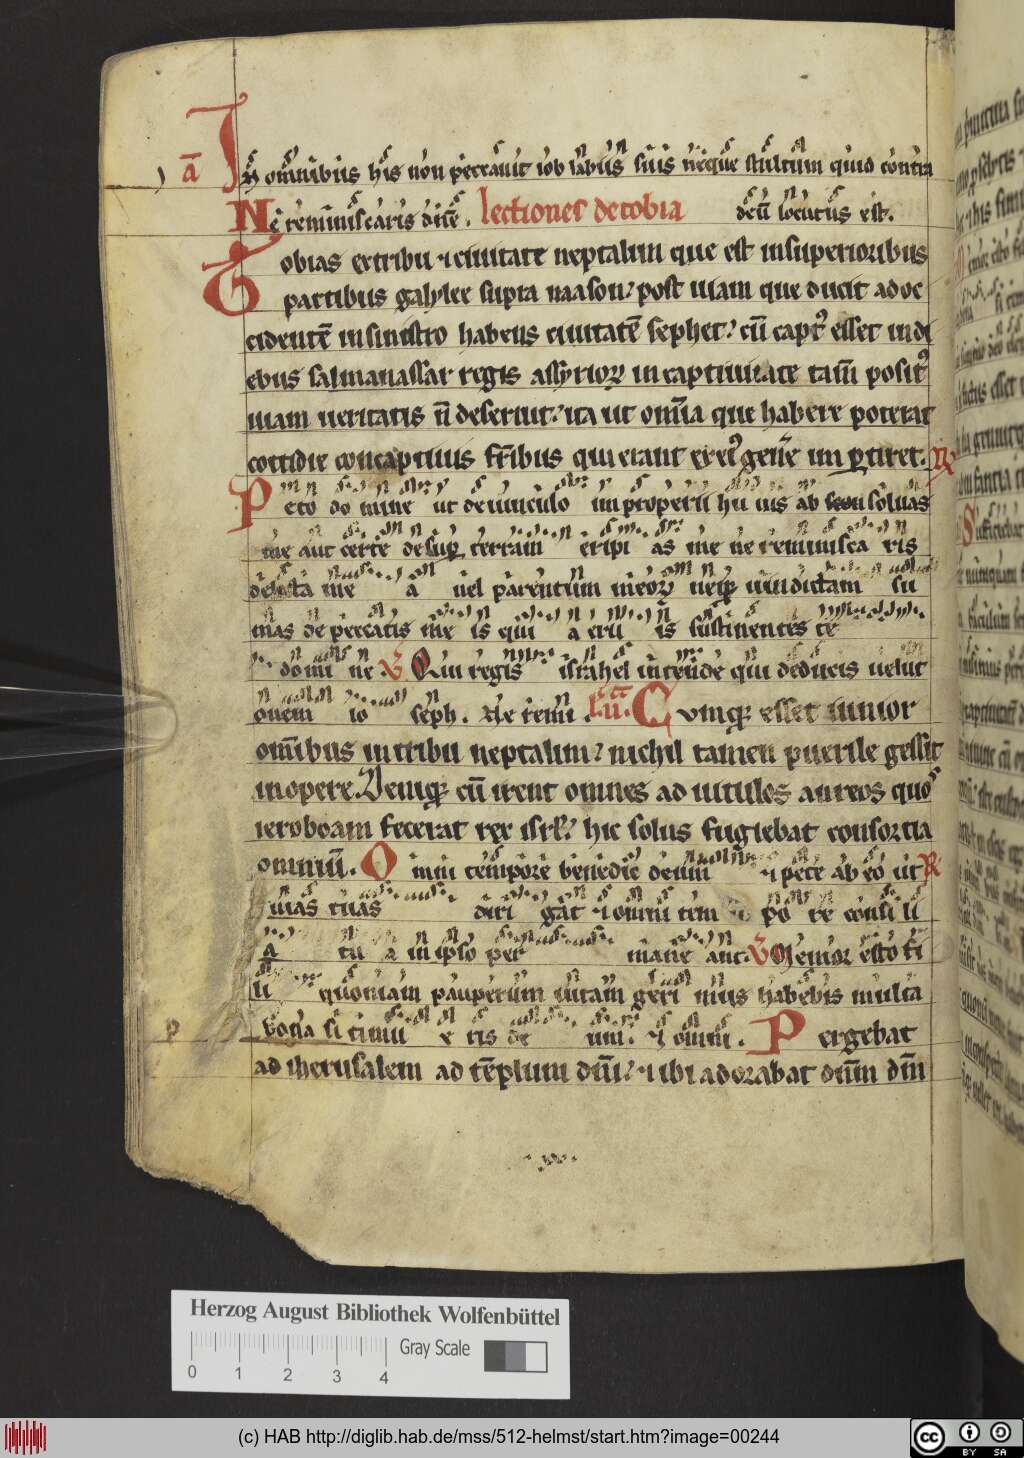 a̅ In omnibus his non peccauit iob labiis suis neque stultum quid contra
Ne reminiscaris dn̅e. lectiones de tobia deu̅ locutus est.
Tobias ex tribu ⁊ ciuitate neptalim que est in superioribus
partibus galylee supra naason? post uiam que ducit ad oc
cidente̅ in sinistro habens ciuitate̅ sephet? cu̅ capt᷒ esset in di
ebus salmanassar regis assyrioꝝ in captiuitate tam̅ posit᷒
uiam ueritatis n̅ deseruit? ita ut om̅ia que habere poterat
cottidie concaptiuis fr̅ibus qui erant ex ei᷒ gen̅e im ꝑtiret. ℟
Peto domine ut de uinculo improperii huius ab soluas
me aut certe desuꝑ terram eripias me ne reminiscaris
delicta mea uel parentum meoꝝ neqꝫ uindictam su
mas de peccatis meis qui a eruis sustinentes te
domine ℣ Qui regis israhel intende qui deducis uelut
ouem ioseph. Ne remi. Cumqꝫ esset iunior
omnibus in tribu neptalim? nichil tamen puerile gessit
in opere. Deniqꝫ cu̅ irent omnes ad uitulos aureos quos
ieroboam fecerat rex isrl̅? hic solus fugiebat consortia
omniu̅. Omni tempore benedic deum ⁊ pete ab eo ut ℟
uias tuas dirigat ⁊ omni tempore consili
a tua in ipso permaneant. ℣ Memor esto fi
li quoniam pauperum uitam gerimus habebis multa
bona si timueris deum. ⁊ omni. Pergebat
ad iherusalem ad te̅plum dn̅i? ⁊ ibi adorabat dn̅m dm̅
Herzog August Bibliothek Wolfenbüttel
Gray Scale
0 1 2 3 4
(c) HAB http://diglib.hab.de/mss/512-helmst/start.htm?image=00244
cc BY SA